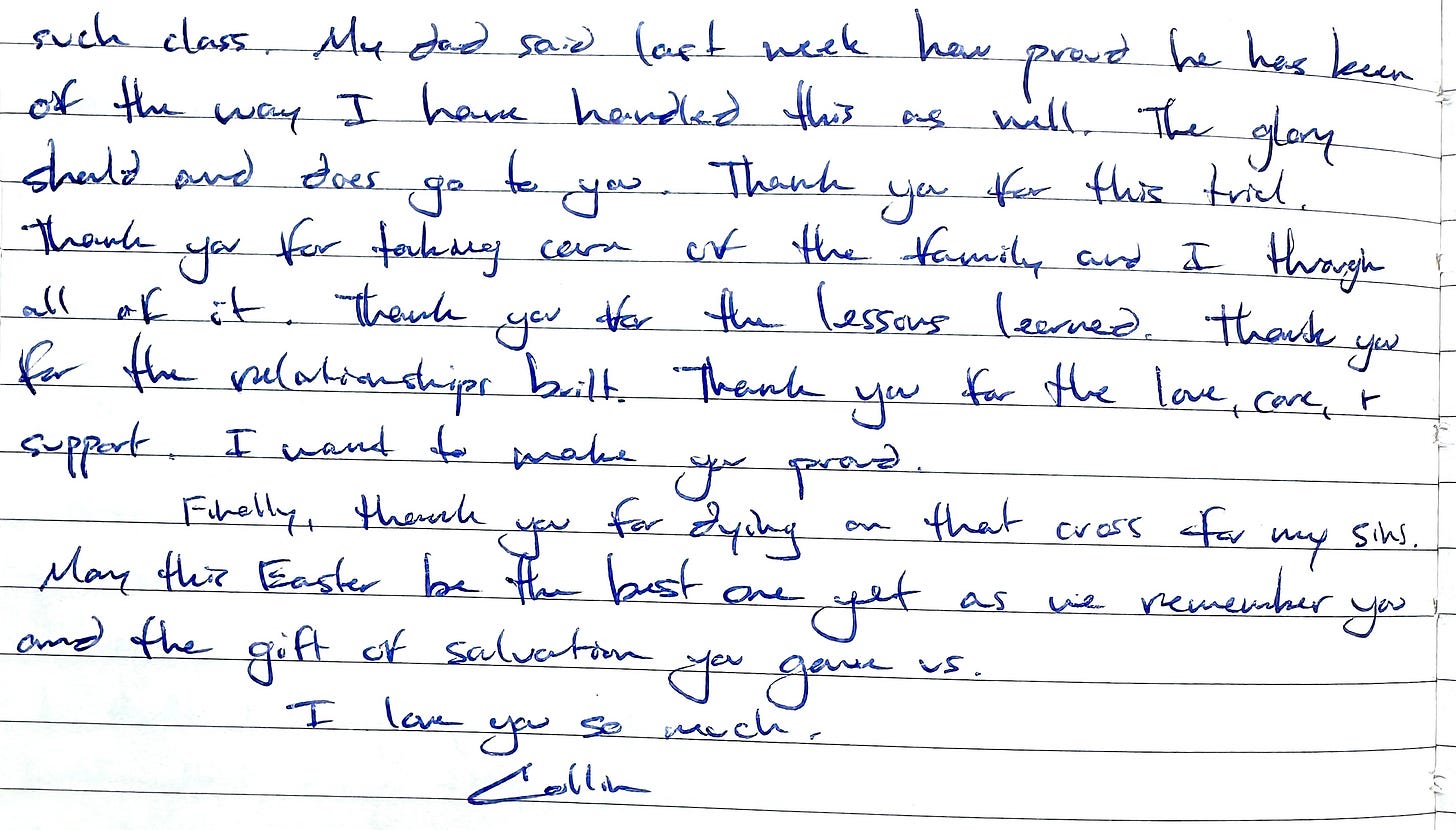 such class. My dad said last week how proud he has been
of the way I have handled this as well. The glory
should and does go to you. Thank you for this trial.
Thank you for taking care of the family and I through
all of it. Thank you for the lessons learned. Thank you
for the relationships built. Thank you for the love, care, +
support. I want to make you proud.
Finally, thank you for dying on that cross for my sins.
May this Easter be the best one yet as we remember you
and the gift of salvation you gave us.
I love you so much.
Collin